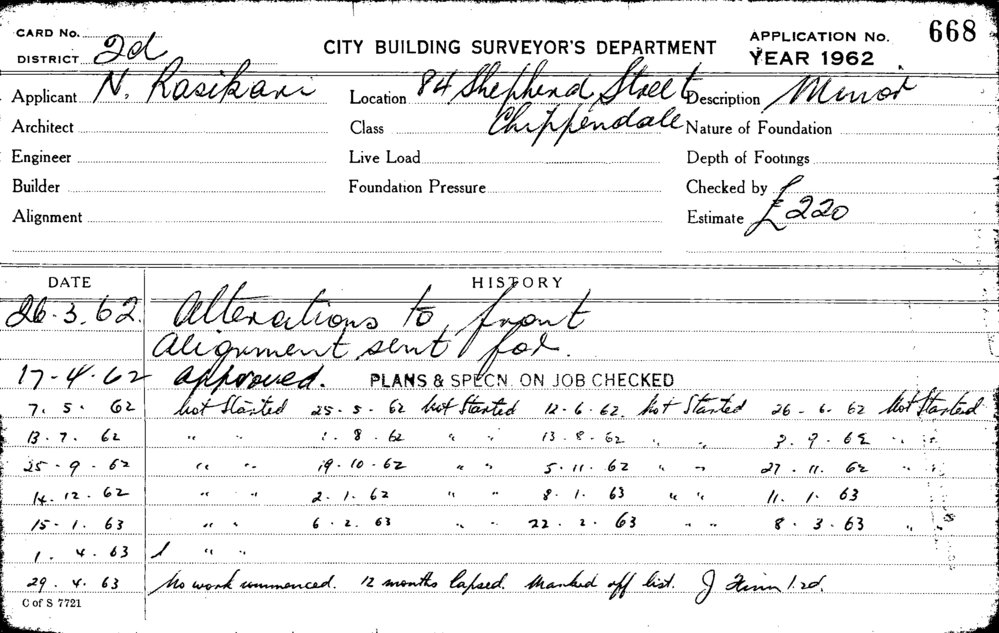 CARD No.
DISTRICT 2d
CITY BUILDING SURVEYOR'S DEPARTMENT
APPLICATION No. 668
YEAR 1962
Applicant N. Rasikari Location 84 Shepherd Street Description Minor
Architect Class Chippendale Nature of Foundation
Engineer Live Load Depth of Footings
Builder Foundation Pressure Checked by
Alignment Estimate £220
DATE HISTORY
26.3.62. Alterations to front
Alignment sent for.
17-4-62 approved. PLANS & SPECN. ON JOB CHECKED
7. 5. 62 Not Started 25. 5. 62 Not Started 12. 6. 62. Not Started 26. 6. 62 Not Started
13. 7. 62 " " 1. 8. 62 " " 13. 8. 62 " " 3. 9. 62 " "
25. 9. 62 " " 19. 10. 62 " " 5. 11. 62 " " 27. 11. 62 " "
14. 12. 62 " " 2. 1. 62 " " 8. 1. 63 " " 11. 1. 63
15. 1. 63 " " 6. 2. 63 " " 22. 2. 63 " " 8. 3. 63 " "
1. 4. 63 " "
29. 4. 63 No work commenced. 12 months lapsed. Marked off list. J
C of S 7721